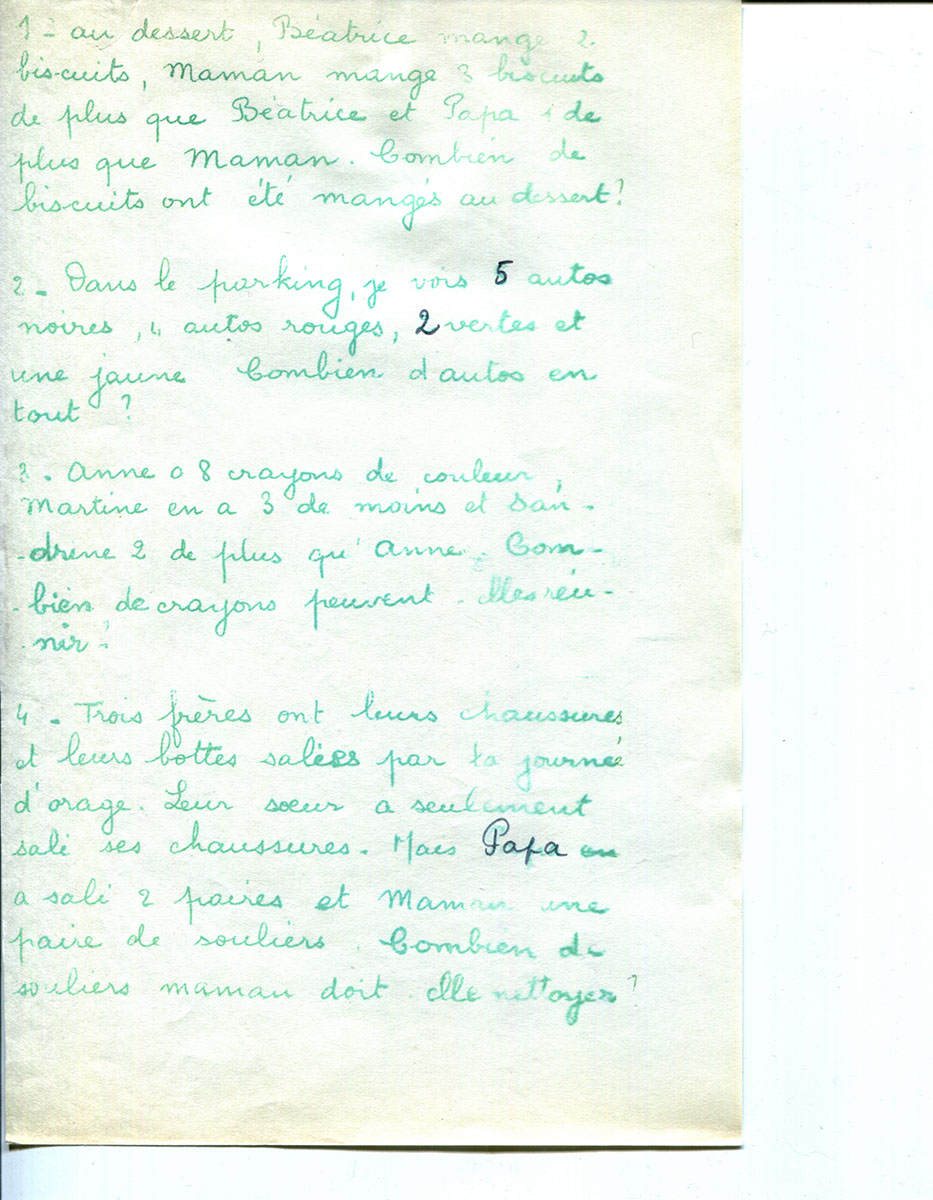 1 - au dessert, Béatrice mange 2
biscuits, Maman mange 3 biscuits
de plus que Béatrice et Papa 1 de
plus que Maman. Combien de
biscuits ont été mangés au dessert?
2 - Dans le parking, je vois 5 autos
noires, 4 autos rouges, 2 vertes et
une jaune Combien d'autos en
tout ?
3 - Anne a 8 crayons de couleur,
Martine en a 3 de moins et San-
-drine 2 de plus qu'Anne. Com-
-bien de crayons peuvent-elles réu-
-nir?
4 - Trois frères ont leurs chaussures
et leurs bottes salies par la journée
d'orage. Leur sœur a seulement
sali ses chaussures. Mais Papa en
a sali 2 paires et Maman une
paire de souliers. Combien de
souliers maman doit-elle nettoyer?